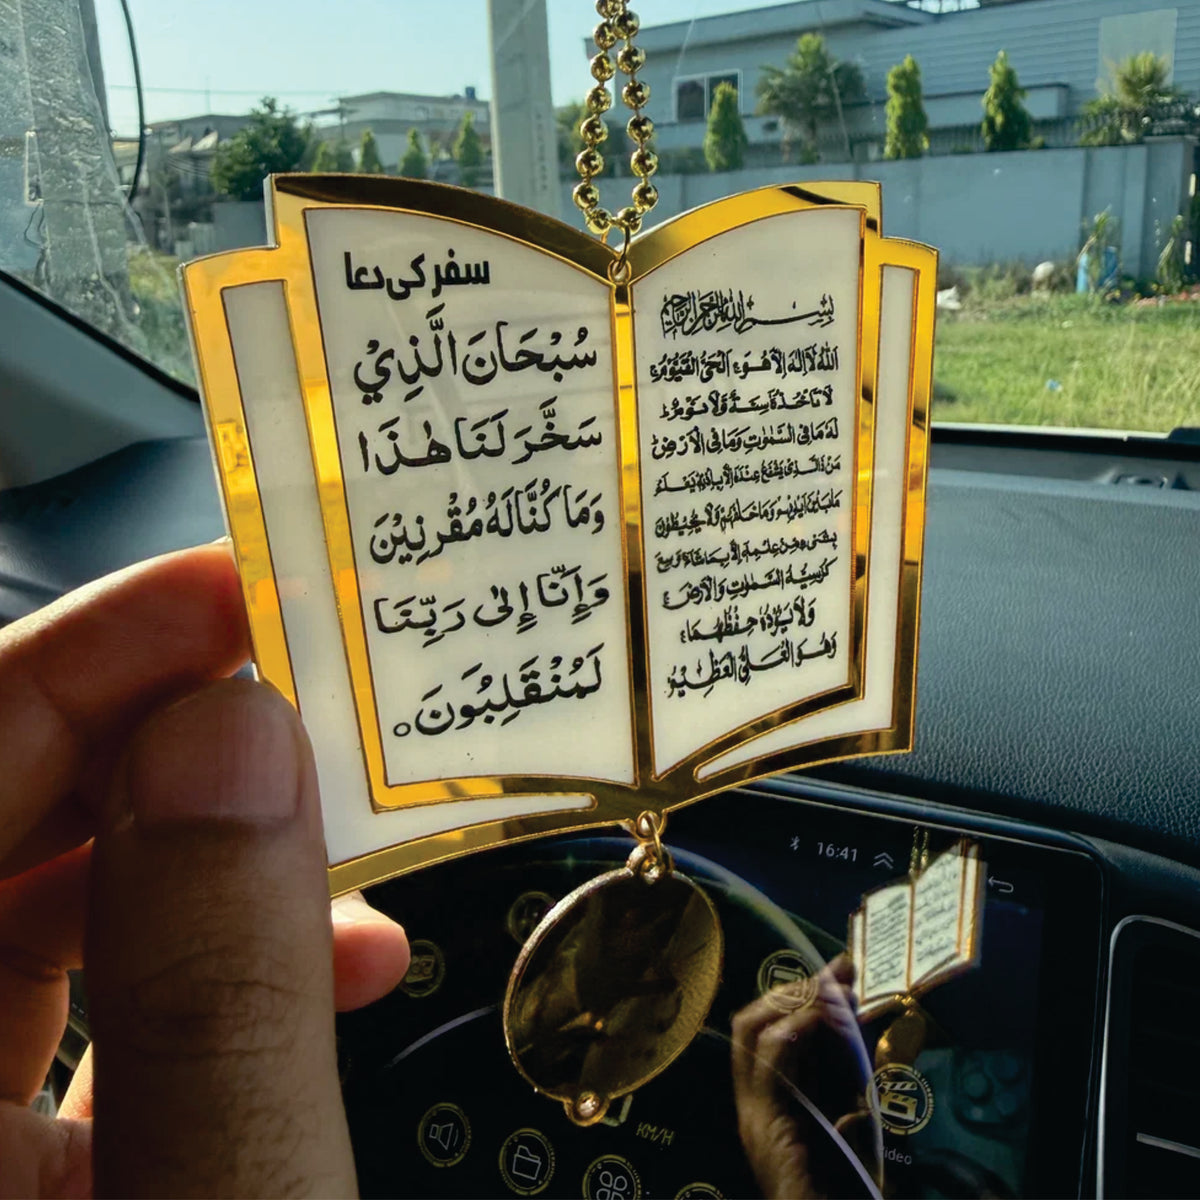 سفر کی دعا
سُبْحَانَ الَّذِيْ
سَخَّرَ لَنَا هٰذَا
وَمَا كُنَّا لَهُ مُقْرِنِيْنَ
وَإِنَّا إِلىٰ رَبِّنَا
لَمُنْقَلِبُونَ
بِسْمِ اللهِ الرَّحْمٰنِ الرَّحِيْمِ
اَللّٰهُ لَا اِلٰهَ اِلَّا هُوَ ۚ اَلْحَىُّ الْقَيُّوْمُ ۚ
لَا تَاْخُذُهٗ سِنَةٌ وَّلَا نَوْمٌ ؕ
لَهٗ مَا فِى السَّمٰوٰتِ وَمَا فِى الْاَرْضِ ؕ
مَنْ ذَا الَّذِىْ يَشْفَعُ عِنْدَهٗۤ اِلَّا بِاِذْنِهٖ ؕ يَعْلَمُ
مَا بَيْنَ اَيْدِيْهِمْ وَمَا خَلْفَهُمْ ۚ وَلَا يُحِيْطُوْنَ
بِشَىْءٍ مِّنْ عِلْمِهٖۤ اِلَّا بِمَا شَآءَ ۚ وَسِعَ
كُرْسِيُّهُ السَّمٰوٰتِ وَالْاَرْضَ ۚ
وَلَا يَئُوْدُهٗ حِفْظُهُمَا ۚ
وَهُوَ الْعَلِىُّ الْعَظِيْمُ
16:41
KM/H
Video